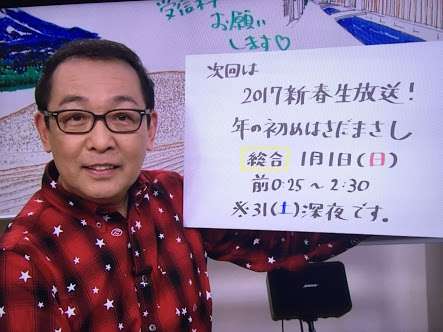 受信料
お願い
します♡
次回は
2017新春生放送!
年の初めはさだまさし
総合 1月1日(日)
前0:25~2:30
※31(土)深夜です。
BOSE